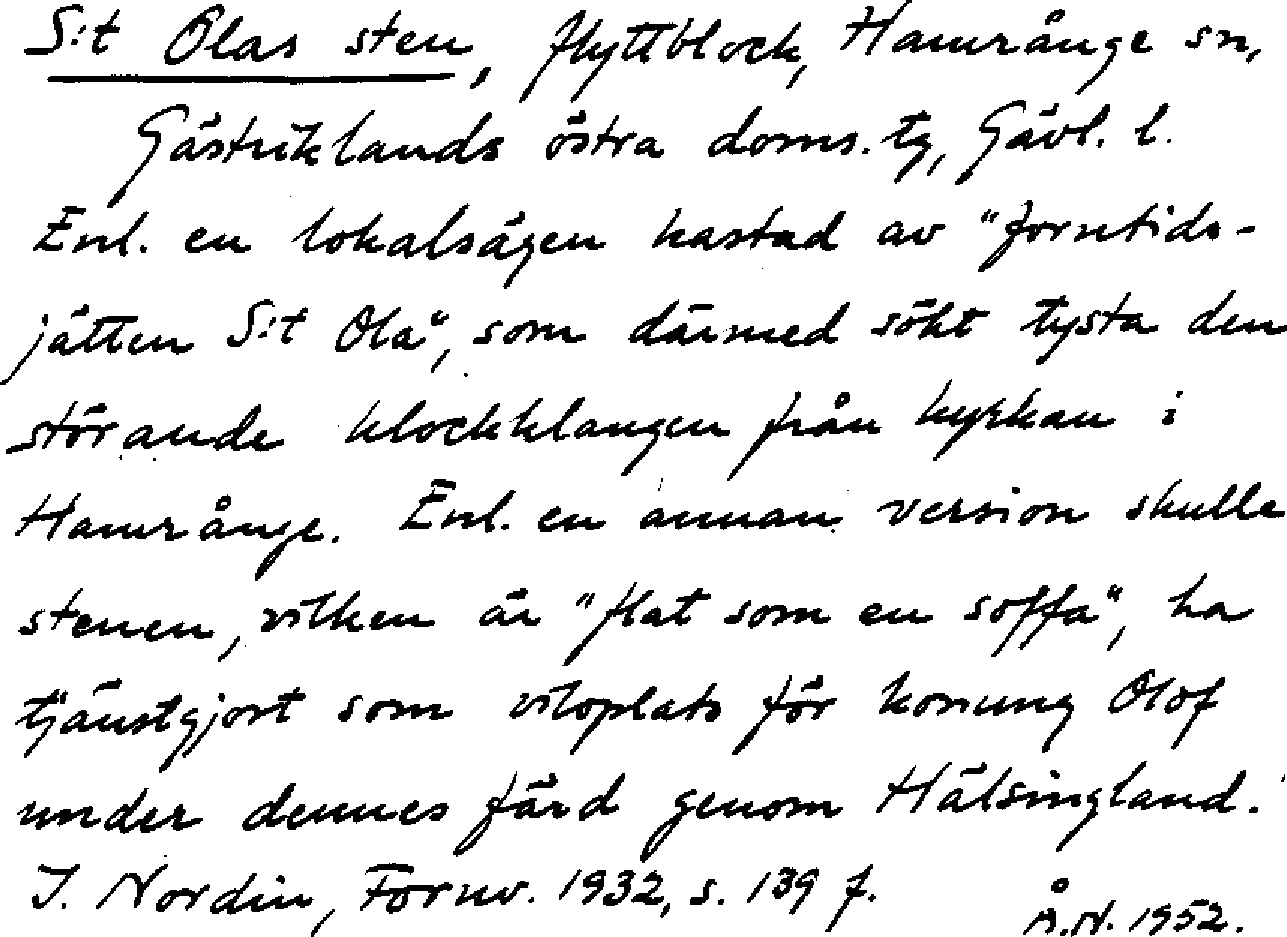 S:t Olas sten, flyttblock, Hamrånge sn,
Gästriklands östra doms. tg, Gävl. l.
Enl. en lokalsägen kastad av "forntids-
jätten S:t Ola", som därmed sökt tysta den
störande klockklangen från kyrkan i
Hamrånge. Enl. en annan version skulle
stenen, vilken är "flat som en soffa", ha
tjänstgjort som viloplats för konung Olof
under dennes färd genom Hälsingland.
J. Nordin, Fornv. 1932, s. 139 f.
Å.N. 1952.